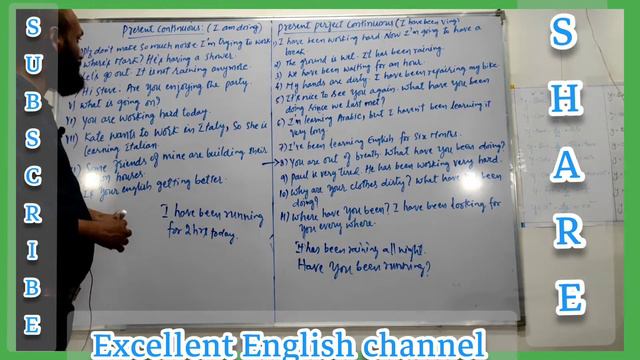 SUBSCRIBE
Present Continuous: (I am doing)
Plz don't make so much noise. I'm trying to work
where's Mark? He's having a shower.
Let's go out. It is not raining anymore.
Hi Steve. Are you enjoying the party.
V) What is going on?
VI) You are working hard today.
VII) Kate wants to work in Italy, So She is
learning Italian.
Some friends of mine are building their
houses.
Is your english getting better.
I have been running
for 2 hrs today.
Present perfect Continuous (I have been Ving)
1) I have been working hard Now I'm going to have a
break
2) The ground is wet. It has been raining.
3) We have been waiting for an hour.
4) My hands are dirty. I have been repairing my bike
5) It's nice to See you again. What have you been
doing Since we last met?
6) I'm learning Arabic, but I haven't been learning it
very long.
7) I've been learning English for Six Months.
→8) You are out of breath. What have you been doing?
9) Paul is very tired. He has been working very hard.
10) Why are your clothes dirty? What have been
doing?
11) Where have you been? I have been looking for
you every where.
It has been raining all night.
Have you been running?
SHARE
Excellent English channel